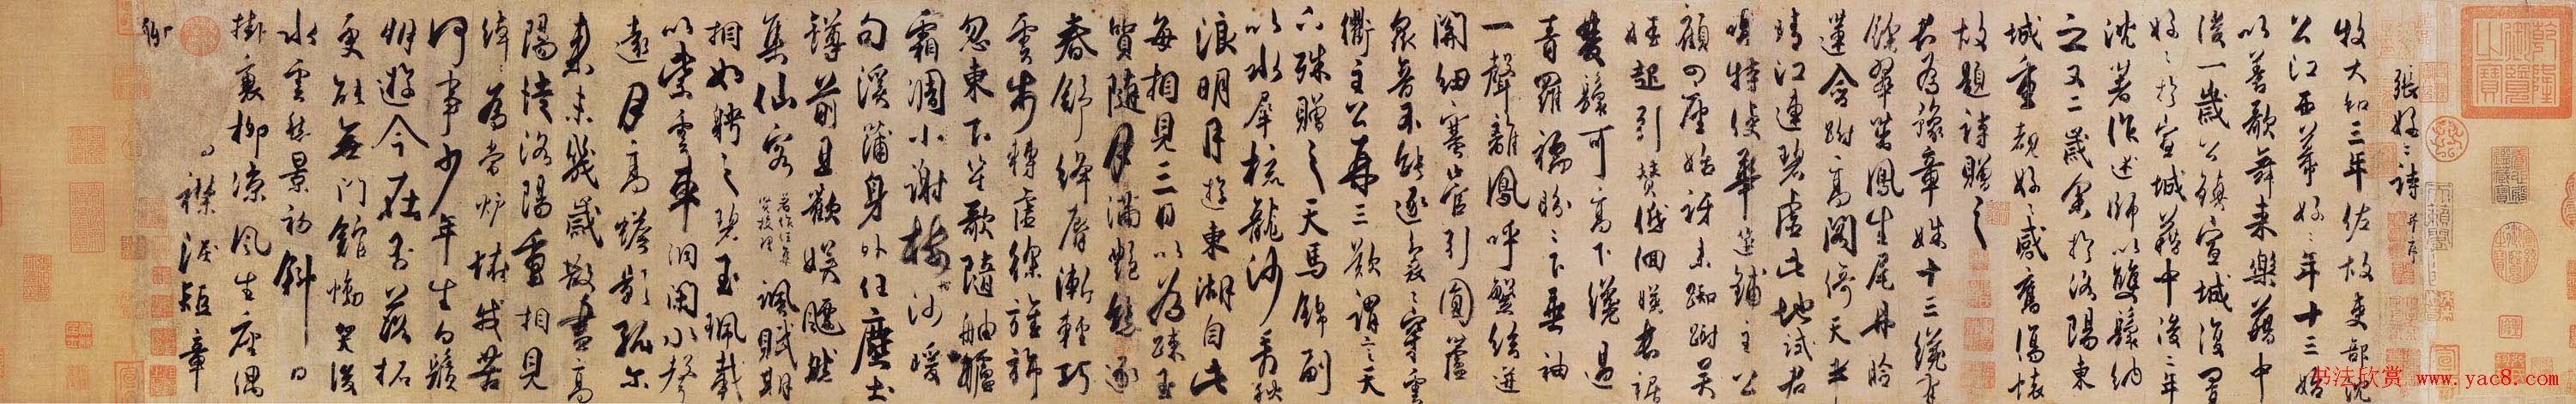 張好好詩 并序
牧大和三年佐故吏部沈
公江西幕好好年十三始
以善歌舞来樂籍中
後一歲公鎮宣城復置
好好於宣城籍中後二年
沈著作述師以雙鬟納
之又二歲余於洛陽東
城重覩好好感舊傷懷
故題詩贈之
君為豫章姝十三纔有
餘翠茁鳳生尾丹臉
蓮含跗高閣倚天半
晴江連碧虛此地試君
唱特使華筵鋪主公
顧四座始訝来踟蹰吳
娃起引贊低佪映長裾
雙鬟可高下纔過
青羅襦盼盼下垂袖
一聲離鳳呼繁絃迸
關紐塞管引圓蘆
衆音不能逐裊裊穿雲
衢主公再三歎謂言天
下殊贈之天馬錦副
以水犀梳龍沙看秋
浪明月遊東湖自此
每相見三日以為疎玉
質隨月滿艷態逐
春舒絳脣漸輕巧
雲步轉虛徐旌旆
忽東下笙歌隨舳艫
霜凋小謝樹沙暖
句溪蒲身外任塵土
罇前且歡娛飄然
集仙客 著作任集賢校理 諷賦期
相如聘之碧玉珮載
以紫雲車洞閉水聲
遠月高蟾影孤尔
来未幾歲散盡高
陽徒洛陽重相見
綽綽為當壚怪我苦
何事少年生白鬚
朋遊今在否落拓
更能無門館慟哭後
水雲愁景初斜日
掛衰柳涼風生座隅
襟淚短章
聊
乾隆御覽之寶
书法欣赏 www.yac8.com